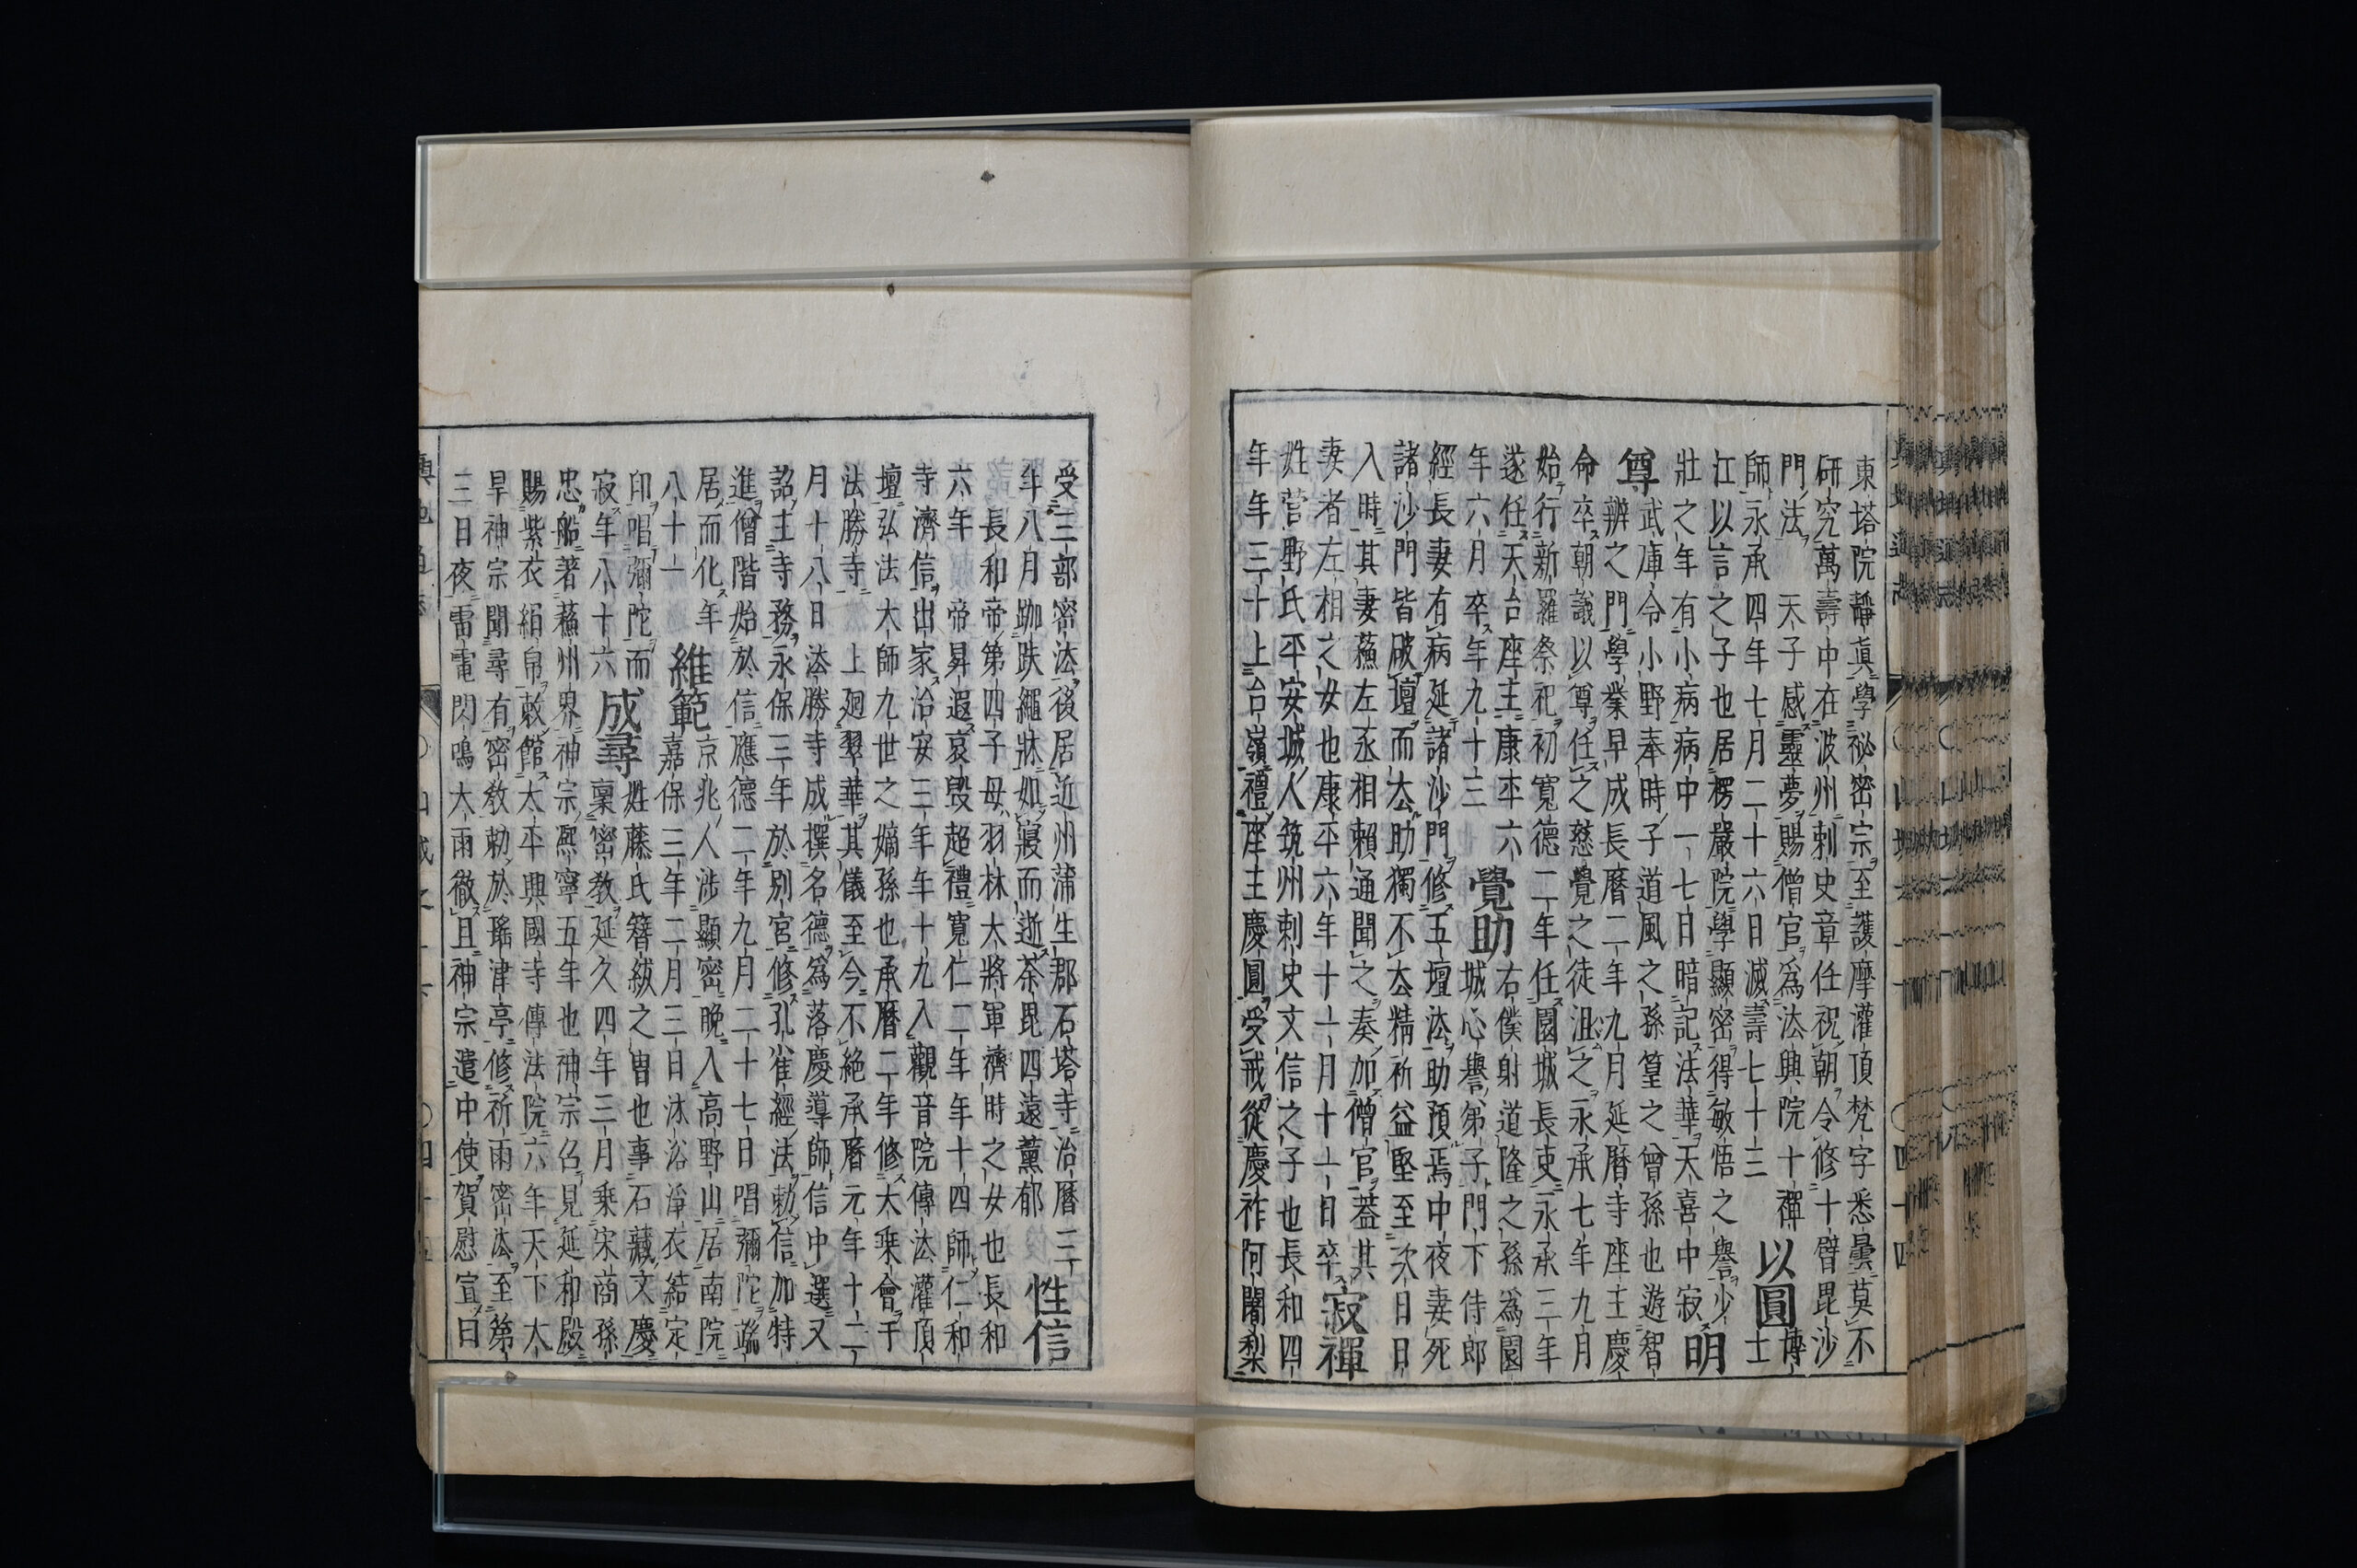 東塔院靜眞學祕密宗至護摩灌頂梵字悉曇莫不
研究萬壽中在波州刺史章任祝朝令修十臂毘沙
門法 天子感靈夢賜僧官爲法興院十禪
師永承四年七月二十六日滅壽七十三 以圓 博士
江以言之子也居楞嚴院學顯密得敏悟之譽少
壯之年有小病病中一七日暗記法華天喜中寂 明
尊 武庫令小野奉時子道風之孫篁之曾孫也遊智
辨之門學業早成長曆二年九月延曆寺座主慶
命卒朝議以尊任之慈覺之徒沮之永承七年九月
始行新羅祭祀初寬德二年任園城長吏永承三年
遂任天台座主康平六 右僕射道隆之孫爲園
年六月卒年九十三 覺助 城心譽弟子門下侍郎
經長妻有病延諸沙門修五壇法助預焉中夜妻死
諸沙門皆破壇而去助獨不去精祈益堅至次日日
入時其妻蘓左丞相賴通聞之奏加僧官蓋其
妻者左相之女也康平六年十一月十一日卒 寂禪
姓菅野氏平安城人筑州刺史文信之子也長和四
年年三十上台嶺禮座主慶圓受戒從慶祚阿闍梨
受三部密法後居近州蒲生郡石塔寺治曆三
年八月跏趺繩牀如寢而逝茶毘四遠薰郁 性信
長和帝第四子母羽林大將軍濟時之女也長和
六年 帝昇遐哀毀超禮寬仁二年年十四師仁和
寺濟信出家治安三年年十九入觀音院傳法灌頂
壇弘法大師九世之嫡孫也承曆二年修大乘會于
法勝寺 上廻翠華其儀至今不絶承曆元年十二
月十八日法勝寺成撰名德爲落慶導師信中選又
詔主寺務永保三年於別宮修孔雀經法勅信加特
進僧階始於信應德二年九月二十七日唱彌陀端
居而化年 維範 京兆人涉顯密晩入高野山居南院
八十一 嘉保三年二月三日沐浴淨衣結定
印唱彌陀而 成尋 姓藤氏簪紱之冑也事石藏文慶
寂年八十六 稟密教延久四年三月乘宋商孫
忠船著蘓州界神宗熙寧五年也神宗召見延和殿
賜紫衣絹帛敕館太平興國寺傳法院六年天下大
旱神宗聞尋有密敎勅於瑤津亭修祈雨密法至第
三日夜雷電閃鳴大雨徹且神宗遣中使賀慰宣曰